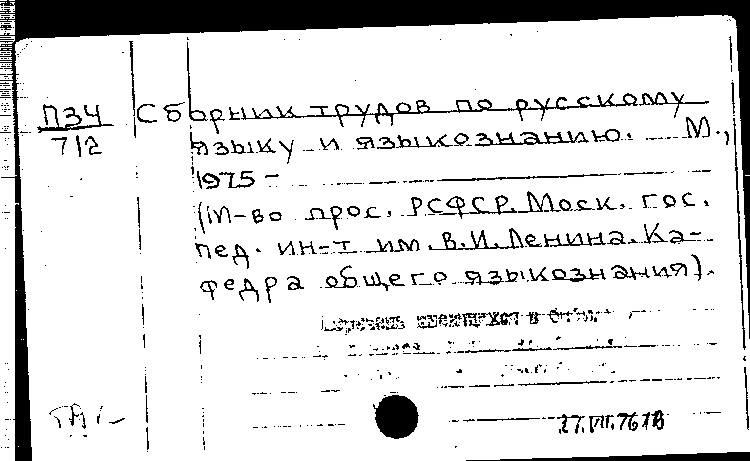 П34 Сборник трудов по русскому
712 языку и языкознанию. М.,
1975 –
(М-во прос. РСФСР. Моск. гос.
пед. ин-т им. В.И. Ленина. Ка-
федра общего языкознания).
имеющихся в
27.VII.76